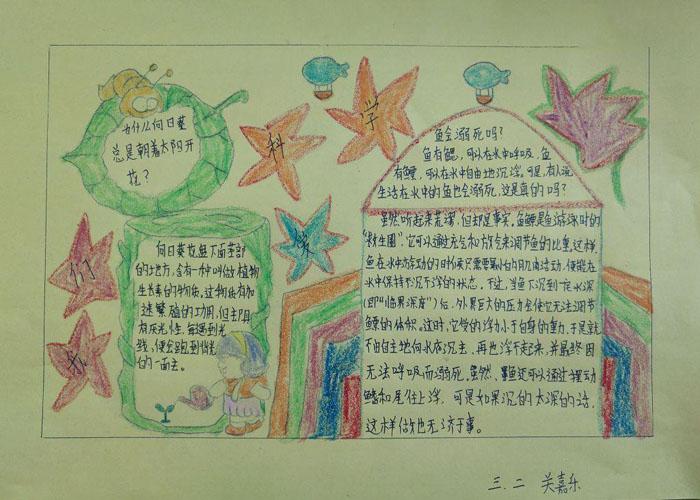 我
们
爱
科
学
为什么向日葵
总是朝着太阳开
花？
向日葵花盘下面茎部
的地方，含有一种叫做植物
生长素的物质。这物质有加
速繁殖的功用，但却具
有反光性，每遇到光
线，便会跑到背光
的一面去。
鱼会溺死吗？
鱼有鳃，可以在水中呼吸，鱼
有鳔，可以在水中自由地沉浮。可是，有人说
生活在水中的鱼也会溺死，这是真的吗？
虽然听起来荒谬，但却是事实。鱼鳔是鱼游泳时的
“救生圈”，它可以通过充气和放气来调节鱼的比重。这样
鱼在水中游动的时候只需要最小的肌肉活动，便能在
水中保持不沉不浮的状态。不过，当鱼下沉到一定水深
（即“临界深度”）后，外界巨大的压力会使它无法调节
鳔的体积。这时，它受的浮力小于自身的重力，于是就
不由自主地向水底沉去，再也浮不起来，并最终因
无法呼吸而溺死。虽然，鱼还可以通过摆动
鳍和尾往上浮，可是如果沉的太深的话，
这样做也无济于事。
三.二 关嘉乐